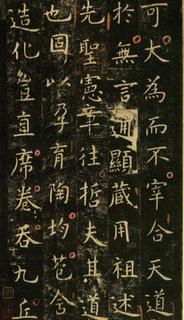 可大為而不宰合天道
於無言通顯藏用祖述
先聖憲章往哲夫其道
也固以孕育陶均苞含
造化豈直席卷吞九丘